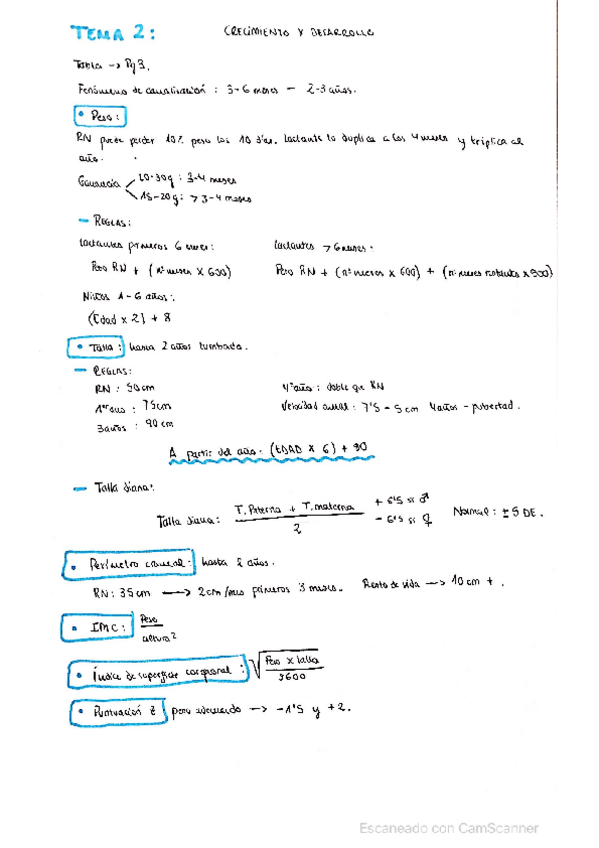 TEMA 2: CRECIMIENTO Y DESARROLLO
Tabla -> Pg 3.
Fenómeno de canalización : 3-6 meses - 2-3 años.
• Peso:
RN puede perder 10% peso los 10 días. Lactante lo duplica a los 4 meses y triplica al
año.
Ganancia 20-30g : 3-4 meses
15-20g : > 3-4 meses
- REGLAS:
Lactantes primeros 6 meses: Lactantes > 6 meses:
Peso RN + (nº meses x 600) Peso RN + (nº meses x 600) + (nº meses restantes x 500)
Niños 1-6 años:
(Edad x 2) + 8
• Talla: hasta 2 años tumbada.
- REGLAS:
RN : 50 cm 4º años : doble que RN
1er año : 75cm Velocidad anual : 7'5 - 5 cm 4 años - pubertad.
3 años : 90 cm
A partir del año: (EDAD x 6) + 80
- Talla diana:
Talla diana: T. Paterna + T. materna / 2 + 6'5 si ♂ - 6'5 si ♀ Normal : ± 5 DE.
• Perímetro craneal: hasta 2 años.
RN: 35cm -> 2cm/mes primeros 3 meses. Resto de vida -> 10 cm +.
• IMC: Peso / altura²
• Índice de superficie corporal: √ Peso x talla / 3600
• Puntuación Z peso adecuado -> -1'5 y +2.
Escaneado con CamScanner